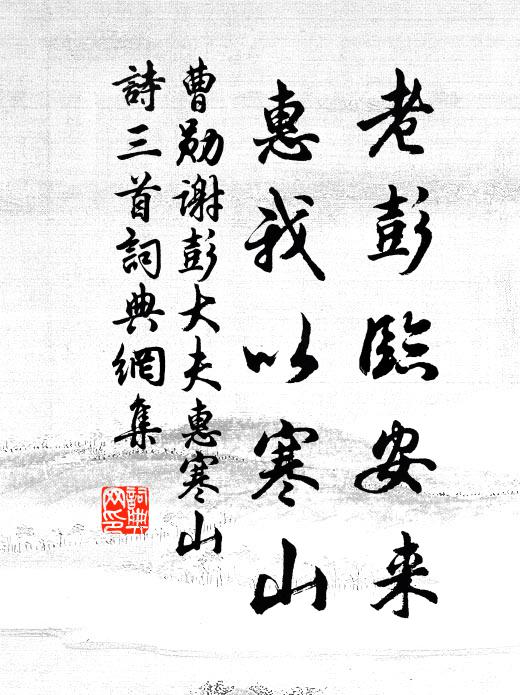 老彭臨安来
惠我以寒山
曹勛谢彭大夫惠寒山
詩三首詞典網集
詞典
网印